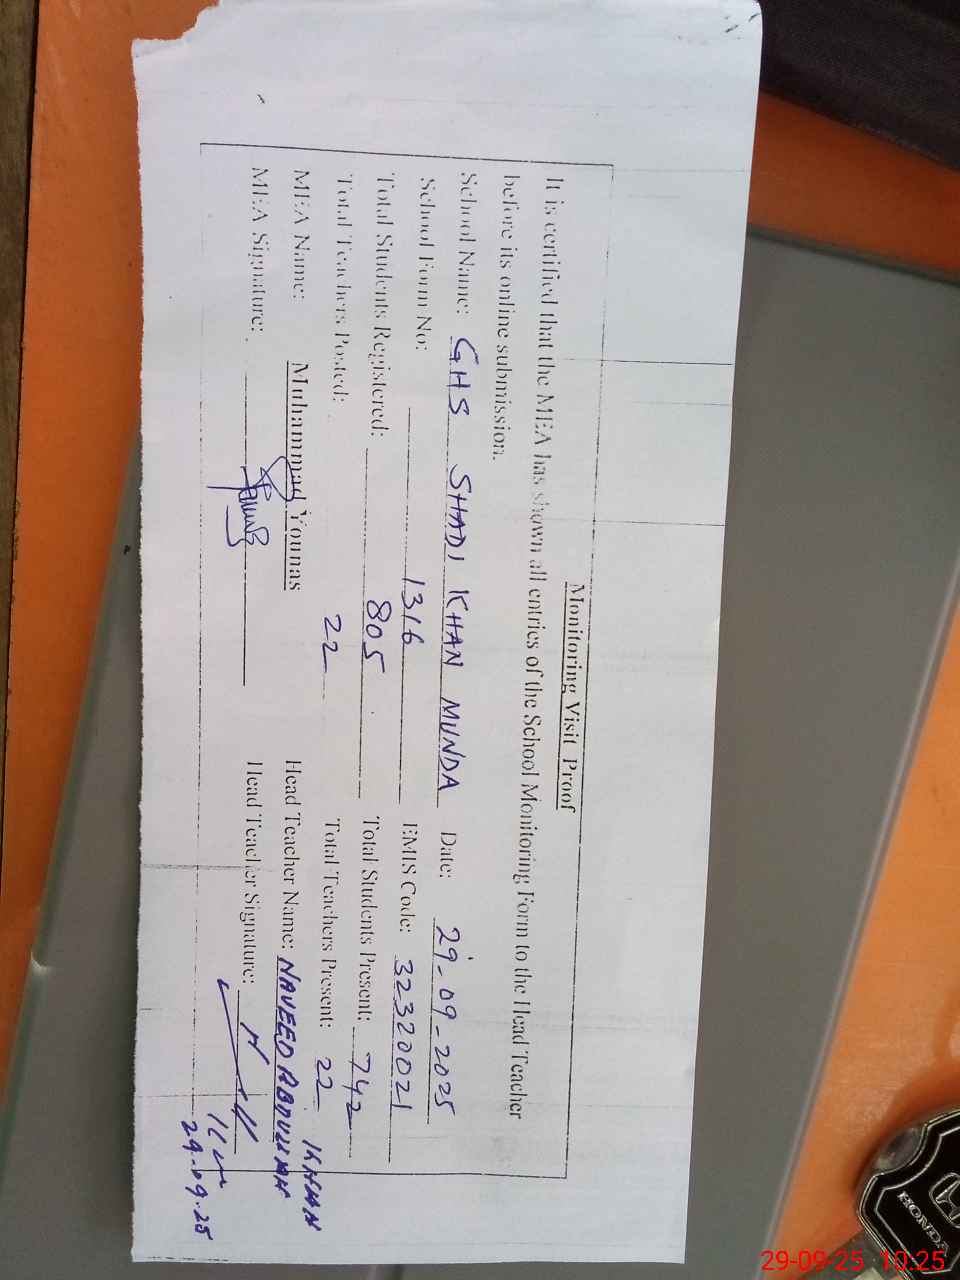 Monitoring Visit Proof
It is certified that the MEA has shown all entries of the School Monitoring Form to the Head Teacher
before its online submission.
School Name: GHS SHADI KHAN MUNDA Date: 29-09-2025
School Form No: 1316 EMIS Code: 32320021
Total Students Registered: 805 Total Students Present: 742
Total Teachers Posted: 22 Total Teachers Present: 22
MEA Name: Muhammad Younas Head Teacher Name: NAVEED ABDULLAH KHAN
MEA Signature: Head Teacher Signature:
29-09-25
HONDA
29-09-25 10:25